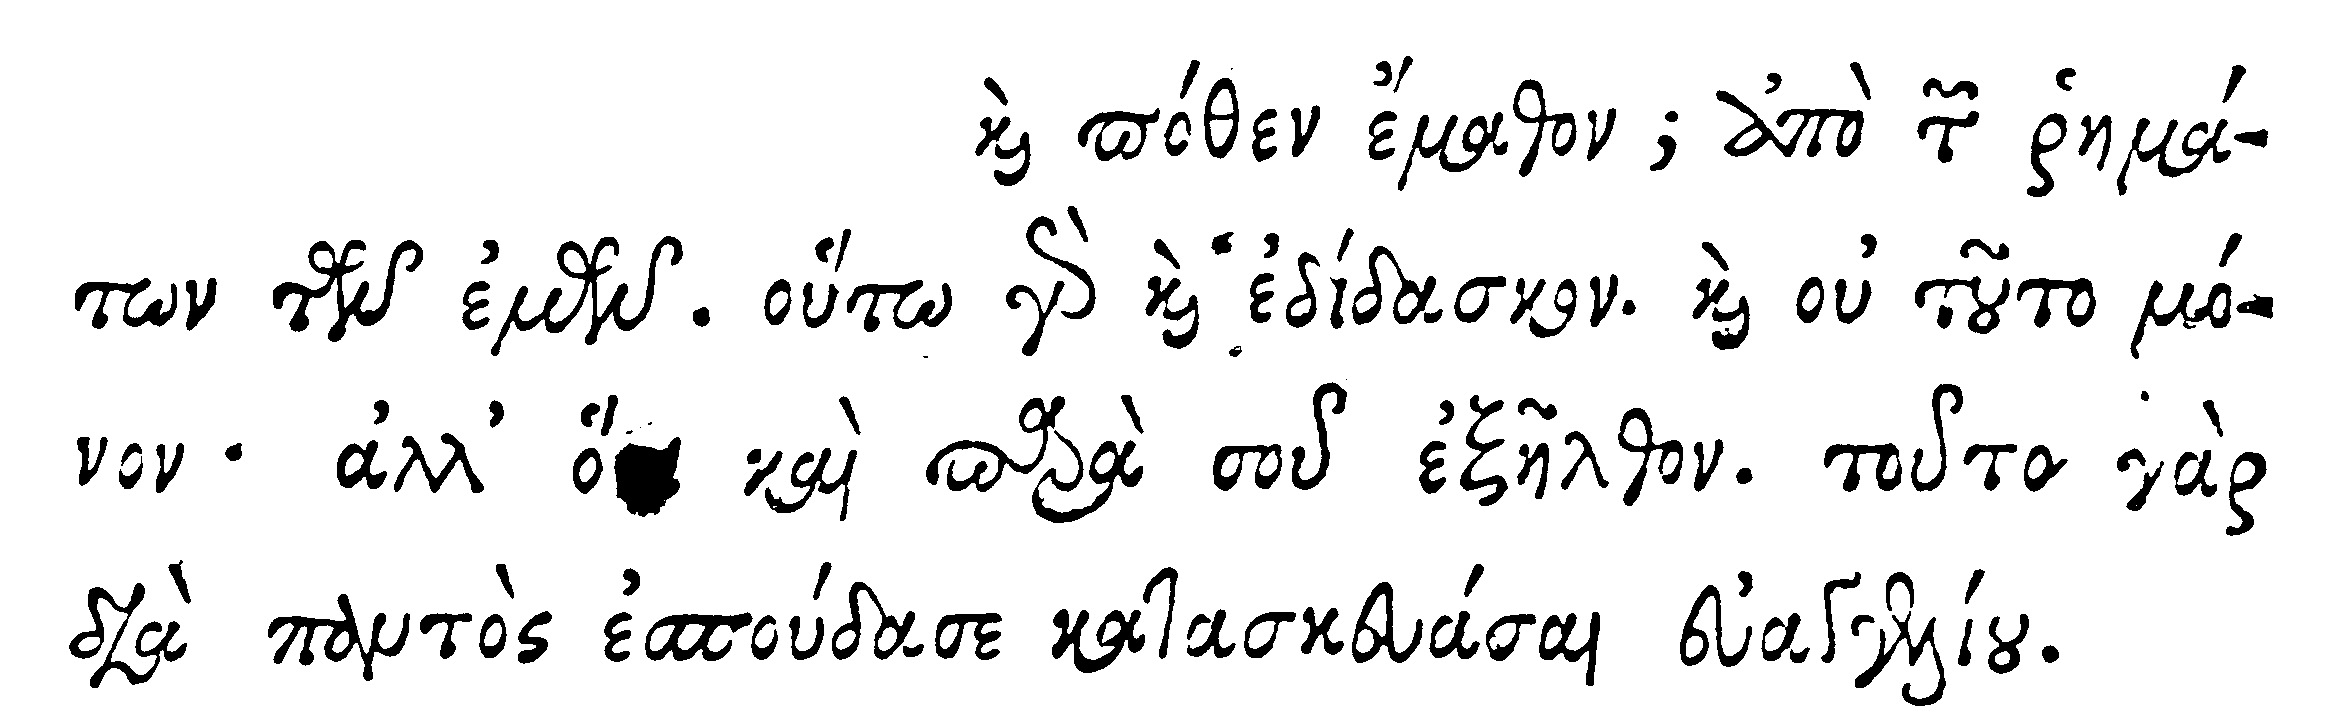 καὶ πόθεν ἔμαθον; ἀπὸ τῶν ῥημά-
των τῶν ἐμῶν. οὕτω γὰρ καὶ ἐδίδασκον. καὶ οὐ τοῦτο μό-
νον· ἀλλ' ὅτι καὶ παρὰ σοῦ ἐξῆλθον. τοῦτο γὰρ
διὰ παντὸς ἐσπούδασε κατασκευάσαι εὐαγγελίου.